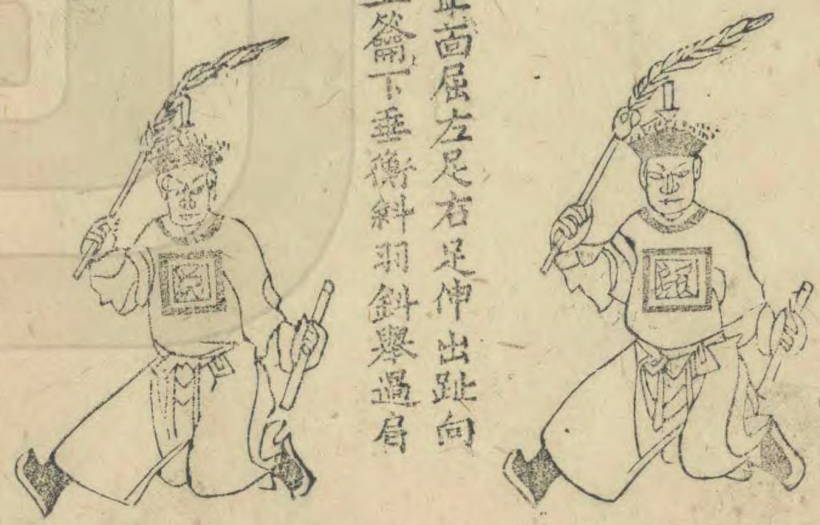 面屈左足右足伸出趾向
籥下垂衡斜羽斜舉過肩